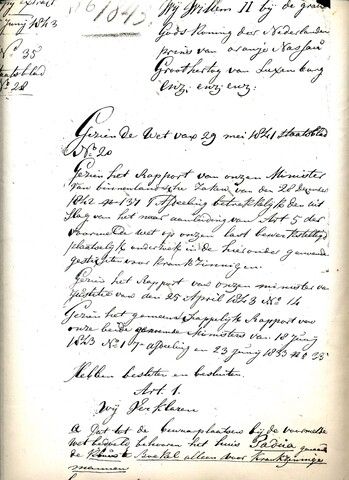 1843
Wij Willem II bij de gratie
Juny 1843
Gods Koning der Nederlanden
prins van oranje Nassau
No 35
Groothertog van Luxemburg
Staatsblad
No 28
enz: enz: enz:
Gezien de Wet van 29 mei 1841 Staatsblad
No 20
Gezien het Rapport van onzen Minister
van binnenlandsche Zaken van den 28 december
1842 no 137 7 Afdeeling betrekkelijk den uit
slag van het naar aanleiding van Art 5 der
voormelde wet op onzen last bewerkstelligd
plaatselijk onderzoek in de hieronder genoemde
gestichten voor krankzinnigen.
Gezien het Rapport van onzen minister van
justitie van den 25 April 1843 No 14
Gezien het gemeenschappelijk Rapport van
onze beide genoemde Ministers van 18 Juny
1843 No 1 7e afdeeling en 23 Juny 1833 no 35
Hebben besloten en besluiten.
Art. 1.
Wij Verklaren
a Dat tot de bewaarplaatsen bij de voormelde
wet bedoeld, behooren het huis Padua genaamd
de Kluis te Boekel alleen voor krankzinnige
mannen